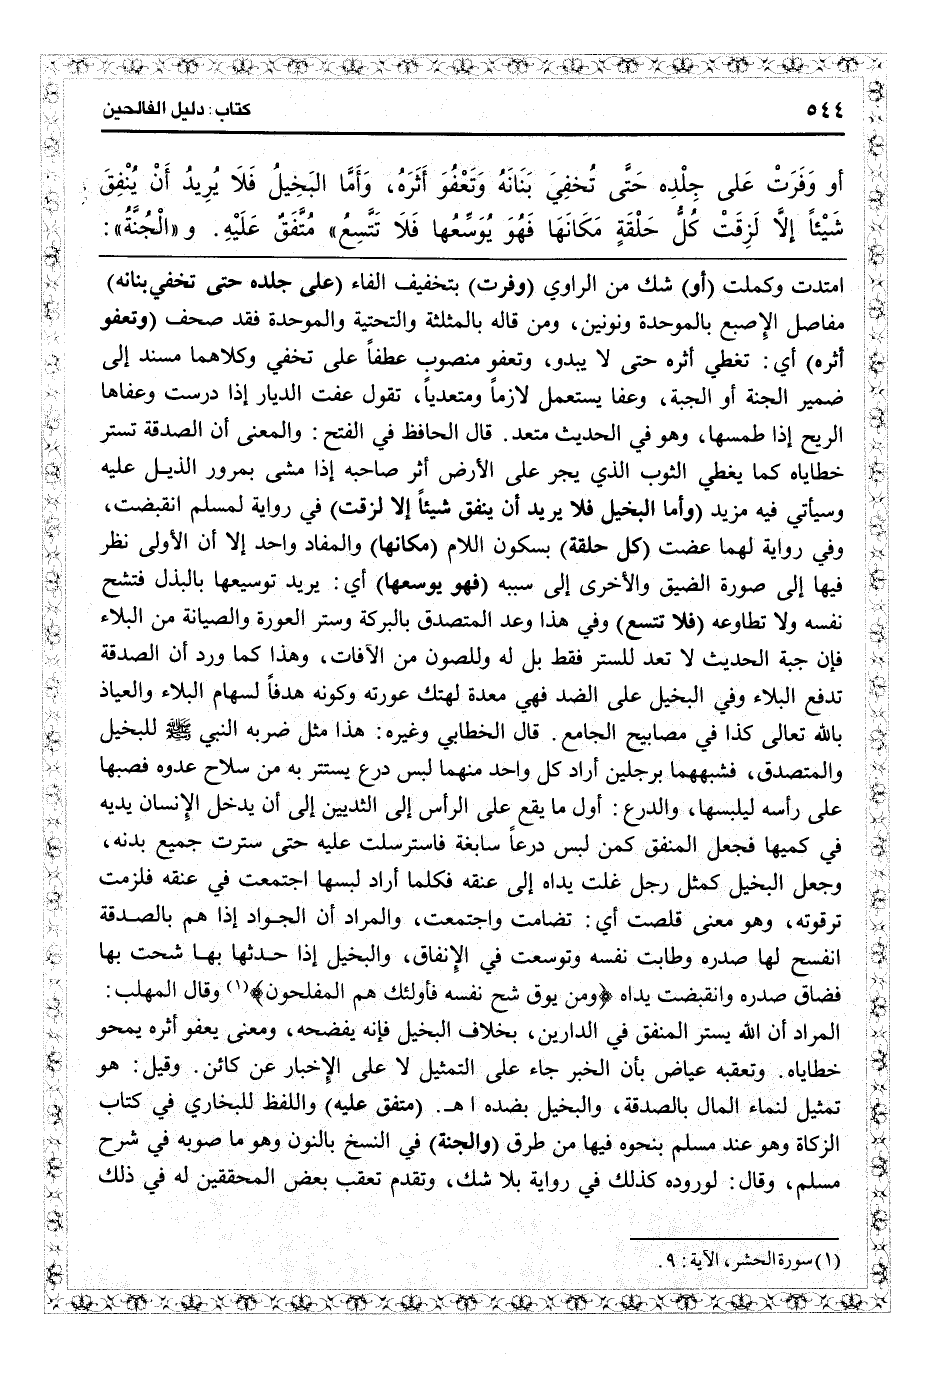 ٥٤٤ كتاب: دليل الفالحين
أو وَفَرَتْ عَلى جِلْدِه حَتَّى تُخفِيَ بَنَانَهُ وَتَعْفُوَ أَثَرَهُ، وَأَمَّا البَخِيلُ فَلَا يُرِيدُ أَنْ يُنْفِقَ
شَيْئاً إلَّا لَزِقَتْ كُلُّ حَلْقَةٍ مَكَانَهَا فَهُوَ يُوَسِّعُها فَلَا تَتَّسِعُ» مُتَّفَقٌ عَلَيْهِ. و «الْجُنَّةُ»:
امتدت وكملت (أو) شك من الراوي (وفرت) بتخفيف الفاء (على جلده حتى تخفي بنانه)
مفاصل الإصبع بالموحدة ونونين، ومن قاله بالمثلثة والتحتية والموحدة فقد صحف (وتعفو
أثره) أي: تغطي أثره حتى لا يبدو، وتعفو منصوب عطفاً على تخفي وكلاهما مسند إلى
ضمير الجنة أو الجبة، وعفا يستعمل لازماً ومتعدياً، تقول عفت الديار إذا درست وعفاها
الريح إذا طمسها، وهو في الحديث متعد. قال الحافظ في الفتح: والمعنى أن الصدقة تستر
خطاياه كما يغطي الثوب الذي يجر على الأرض أثر صاحبه إذا مشى بمرور الذيل عليه
وسيأتي فيه مزيد (وأما البخيل فلا يريد أن ينفق شيئاً إلا لزقت) في رواية لمسلم انقبضت،
وفي رواية لهما عضت (كل حلقة) بسكون اللام (مكانها) والمفاد واحد إلا أن الأولى نظر
فيها إلى صورة الضيق والأخرى إلى سببه (فهو يوسعها) أي: يريد توسيعها بالبذل فتشح
نفسه ولا تطاوعه (فلا تتسع) وفي هذا وعد المتصدق بالبركة وستر العورة والصيانة من البلاء
فإن جبة الحديث لا تعد للستر فقط بل له وللصون من الآفات، وهذا كما ورد أن الصدقة
تدفع البلاء وفي البخيل على الضد فهي معدة لهتك عورته وكونه هدفاً لسهام البلاء والعياذ
بالله تعالى كذا في مصابيح الجامع. قال الخطابي وغيره: هذا مثل ضربه النبي ﷺ للبخيل
والمتصدق، فشبههما برجلين أراد كل واحد منهما لبس درع يستتر به من سلاح عدوه فصبها
على رأسه ليلبسها، والدرع: أول ما يقع على الرأس إلى الثديين إلى أن يدخل الإنسان يديه
في كميها فجعل المنفق كمن لبس درعاً سابغة فاسترسلت عليه حتى سترت جميع بدنه،
وجعل البخيل كمثل رجل غلت يداه إلى عنقه فكلما أراد لبسها اجتمعت في عنقه فلزمت
ترقوته، وهو معنى قلصت أي: تضامت واجتمعت، والمراد أن الجواد إذا هم بالصدقة
انفسح لها صدره وطابت نفسه وتوسعت في الإنفاق، والبخيل إذا حدثها بها شحت بها
فضاق صدره وانقبضت يداه ﴿ومن يوق شح نفسه فأولئك هم المفلحون﴾(١) وقال المهلب:
المراد أن الله يستر المنفق في الدارين، بخلاف البخيل فإنه يفضحه، ومعنى يعفو أثره يمحو
خطاياه. وتعقبه عياض بأن الخبر جاء على التمثيل لا على الإخبار عن كائن. وقيل: هو
تمثيل لنماء المال بالصدقة، والبخيل بضده اهـ. (متفق عليه) واللفظ للبخاري في كتاب
الزكاة وهو عند مسلم بنحوه فيها من طرق (والجنة) في النسخ بالنون وهو ما صوبه في شرح
مسلم، وقال: لوروده كذلك في رواية بلا شك، وتقدم تعقب بعض المحققين له في ذلك
(١) سورة الحشر، الآية: ٩.